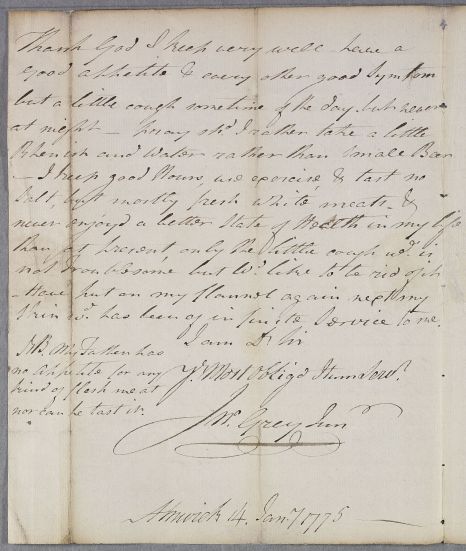 Thank God I keep very well have a
good appetite & every other good Symtom
but a little cough sometime of the day but never
at night – shd I rather take a little
Rhenish and Water rather than Small Beer
– I keep good Hours use exercise & tast no
Salt, but mostly fresh white meats, &
never enjoyd a better State of Health in my life
than at present only the little cough wch is
not troublesome but wd like to be rid of it
– Have put on my flannel again next my
Skin wch has been of infinite Service to me.
I am Dr Sir
Yr Most Obligd Hum Servt
Jno Grey Junr
NB. My Father has
no appetite for any
kind of flesh meat
nor can he tast it.
Alnwick 14 Jany 1775